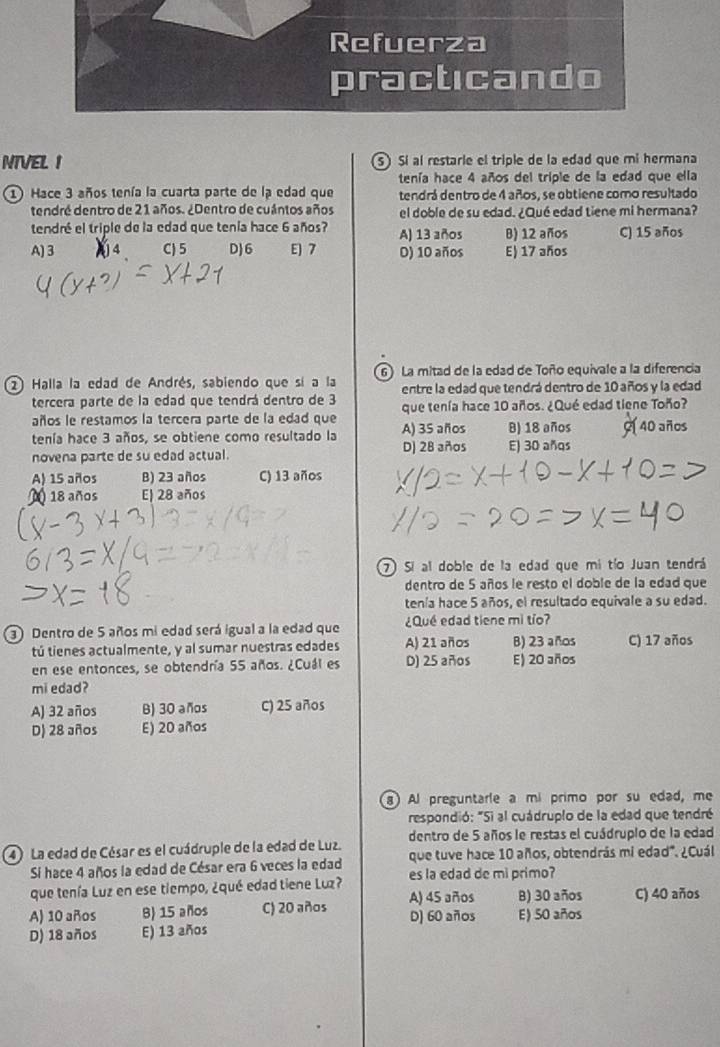 Refuerza
practicando
NIVEL 1
1) Hace 3 años tenía la cuarta parte de la edad que
tendré dentro de 21 años. ¿Dentro de cuántos años
tendré el triple de la edad que tenía hace 6 años?
A) 3 B) 4 C) 5 D) 6 E) 7
4(x+3) = x+21
2) Halla la edad de Andrés, sabiendo que si a la
tercera parte de la edad que tendrá dentro de 3
años le restamos la tercera parte de la edad que
tenía hace 3 años, se obtiene como resultado la
novena parte de su edad actual.
A) 15 años B) 23 años C) 13 años
18 años E) 28 años
(x-3 x+3) 3 = x/9 =>
6/3 = x/9 =>
=> x = 18
3) Dentro de 5 años mi edad será igual a la edad que
tú tienes actualmente, y al sumar nuestras edades
en ese entonces, se obtendría 55 años. ¿Cuál es
mi edad?
A) 32 años B) 30 años C) 25 años
D) 28 años E) 20 años
4) La edad de César es el cuádruple de la edad de Luz.
Si hace 4 años la edad de César era 6 veces la edad
que tenía Luz en ese tiempo, ¿qué edad tiene Luz?
A) 10 años B) 15 años C) 20 años
D) 18 años E) 13 años
5) Si al restarle el triple de la edad que mi hermana
tenía hace 4 años del triple de la edad que ella
tendrá dentro de 4 años, se obtiene como resultado
el doble de su edad. ¿Qué edad tiene mi hermana?
A) 13 años B) 12 años C) 15 años
D) 10 años E) 17 años
6) La mitad de la edad de Toño equivale a la diferencia
entre la edad que tendrá dentro de 10 años y la edad
que tenía hace 10 años. ¿Qué edad tiene Toño?
A) 35 años B) 18 años C) 40 años
D) 28 años E) 30 años
x/2 = x+10-x+10 =>
x/2 = 20 => x = 40
7) Si al doble de la edad que mi tío Juan tendrá
dentro de 5 años le resto el doble de la edad que
tenía hace 5 años, el resultado equivale a su edad.
¿Qué edad tiene mi tío?
A) 21 años B) 23 años C) 17 años
D) 25 años E) 20 años
8) Al preguntarle a mi primo por su edad, me
respondió: "Si al cuádruplo de la edad que tendré
dentro de 5 años le restas el cuádruplo de la edad
que tuve hace 10 años, obtendrás mi edad". ¿Cuál
es la edad de mi primo?
A) 45 años B) 30 años C) 40 años
D) 60 años E) 50 años